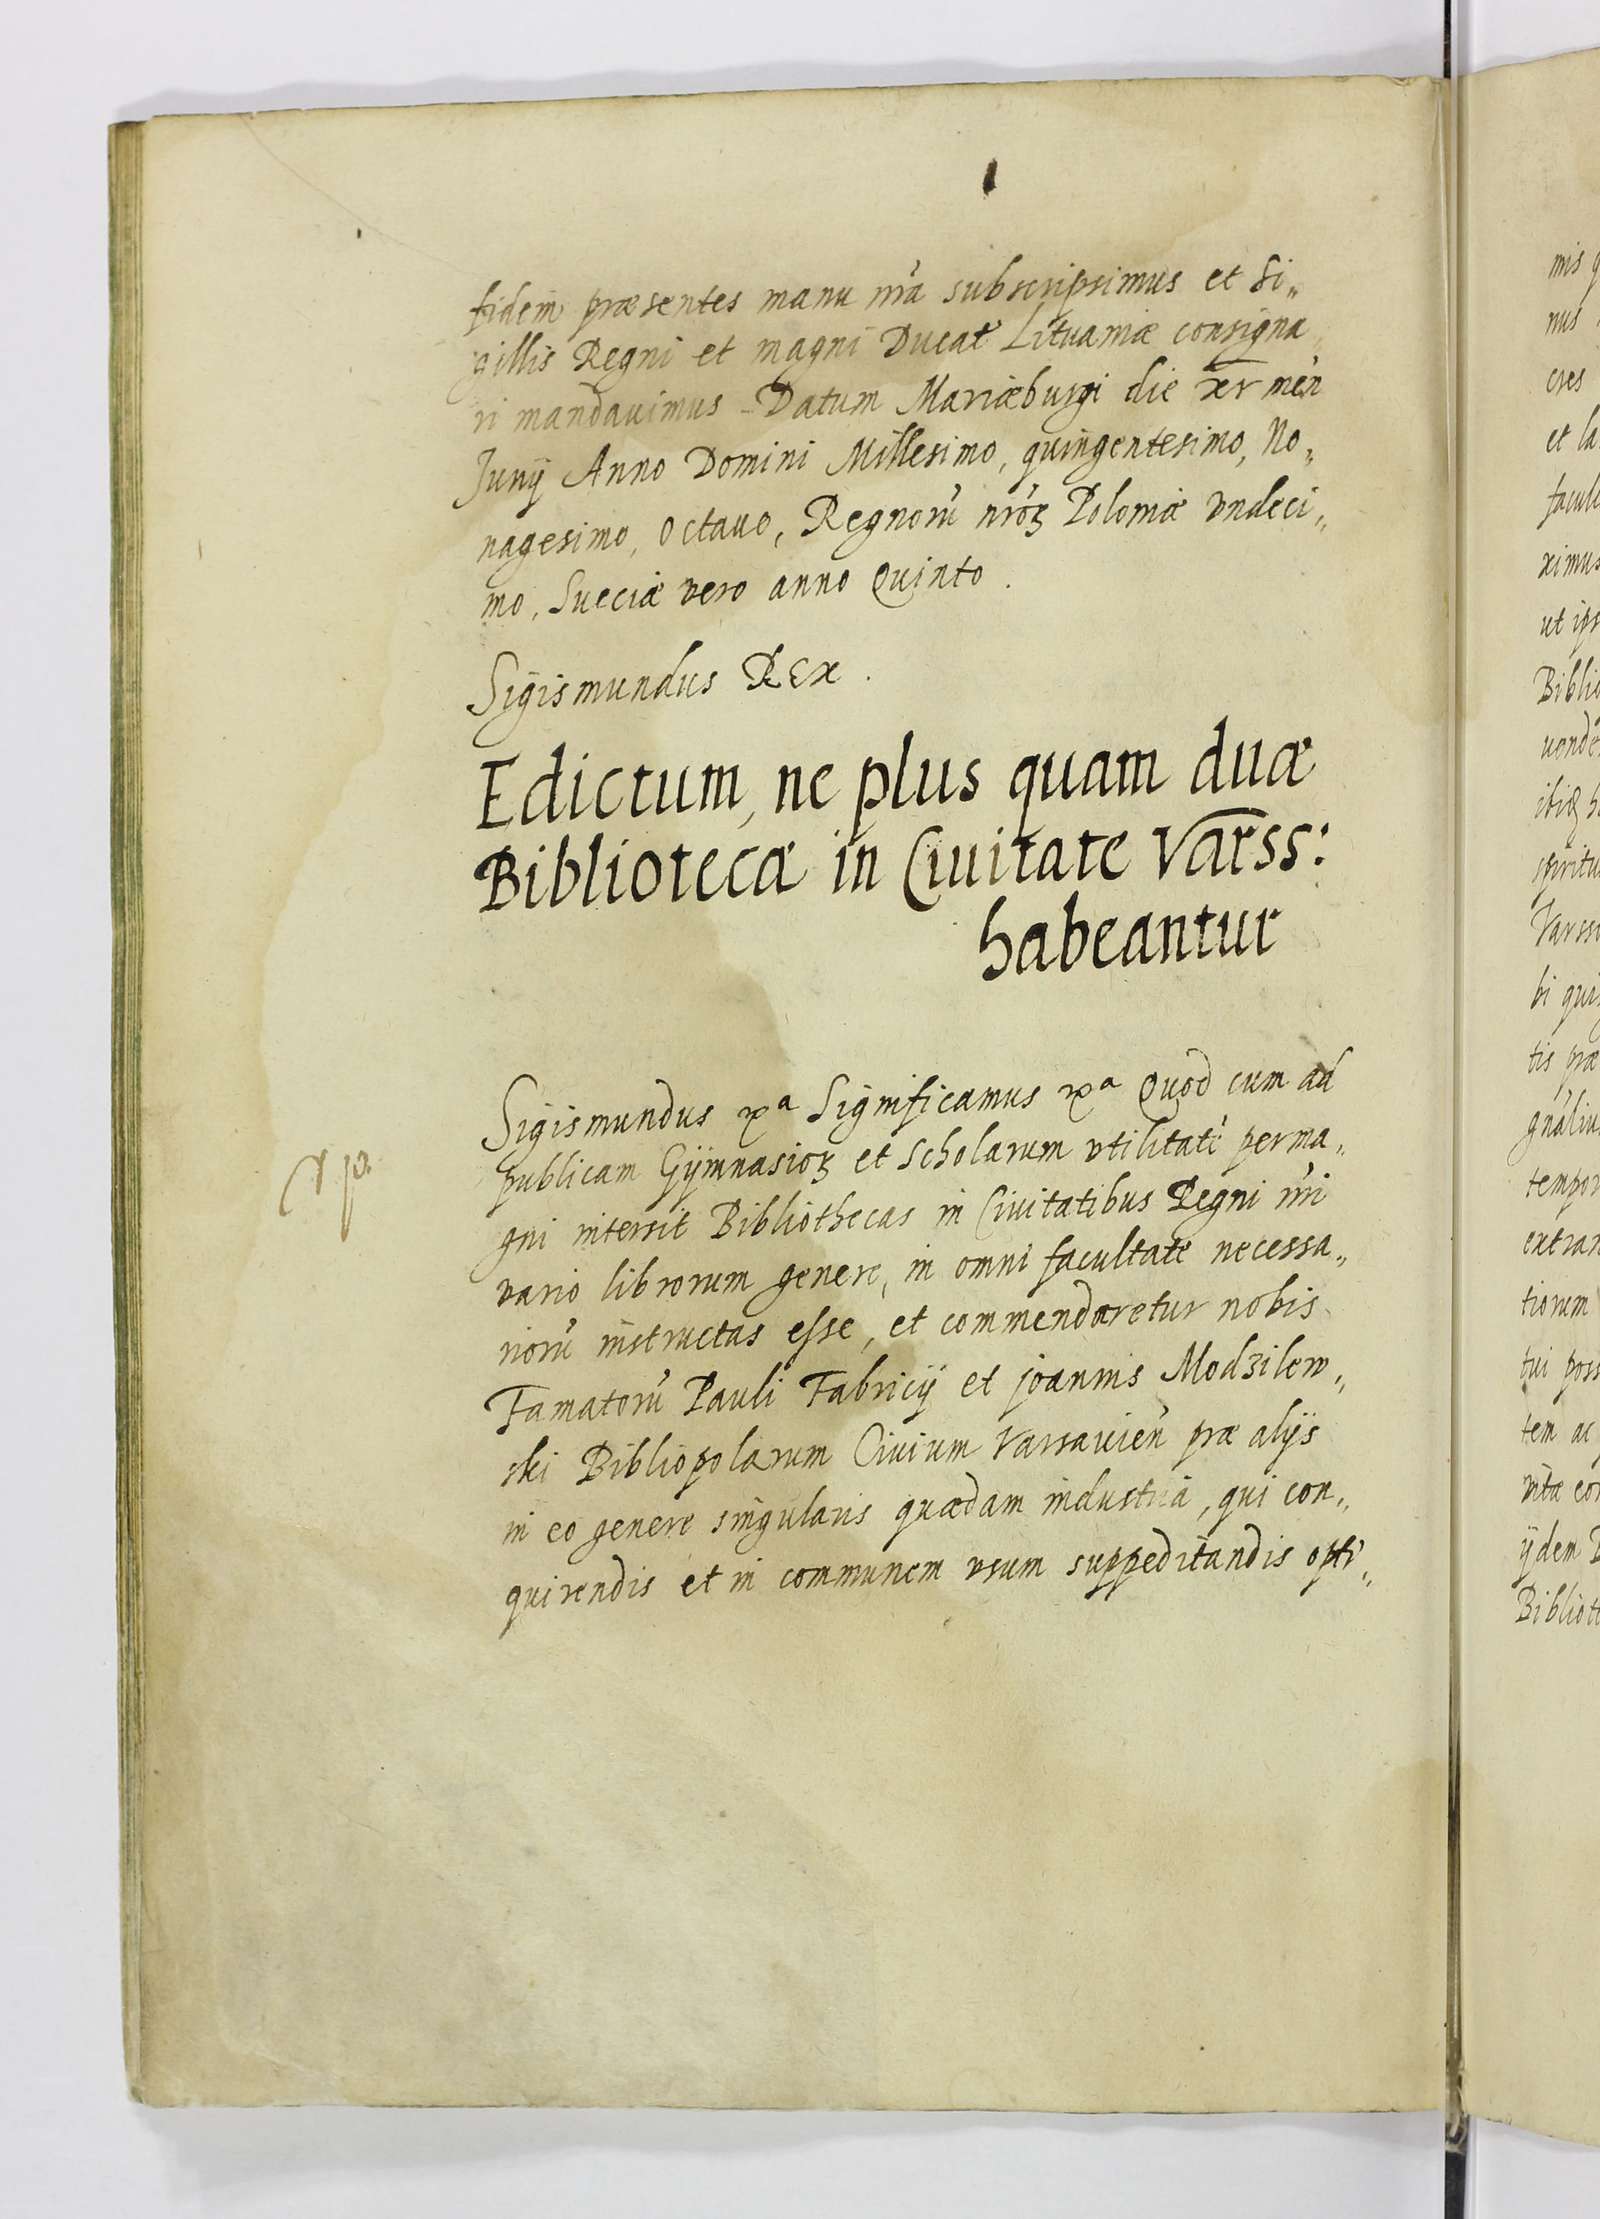 fidem præsentes manu nr̃a subscripsimus et Si„
gillis Regni et magni Ducat Lituaniæ consigna„
ri mandauimus Datum Mariæburgi die men̄
Junÿ Anno Domini Millesimo, quingentesimo, No„
nagesimo, Octauo, Regnorū nr̃oꝝ Poloniæ vndeci„
mo, Sueciæ vero anno Quinto.
Sigismundus REx.
Edictum, ne plus quam duæ
Bibliotecæ in Ciuitate Varss:
habeantur
Sigismundus Significamus Quod cum ad
publicam Gÿmnasioꝝ et Scholarum vtilitatē perma„
gni intersit Bibliothecas in Ciuitatibus Regni nr̃i
vario librorum genere, in omni facultate necessa„
riorū instructas esse, et commendaretur nobis
Famatorū Pauli Fabricÿ et joannis Modzilew„
ski Bibliopolarum Ciuium Varsauien̄ præ alÿs
in eo genere singularis quædam industria, qui con„
quirendis et in communem vsum suppeditandis opti„
mis
nus
cres
et la
facul
ximus
ut ips
Biblio
spiritu
Varss
bi qui
tis præ
tempor
extran
tiorum
tui poss
tem ac
vitæ con
ÿdem B
Bibliot